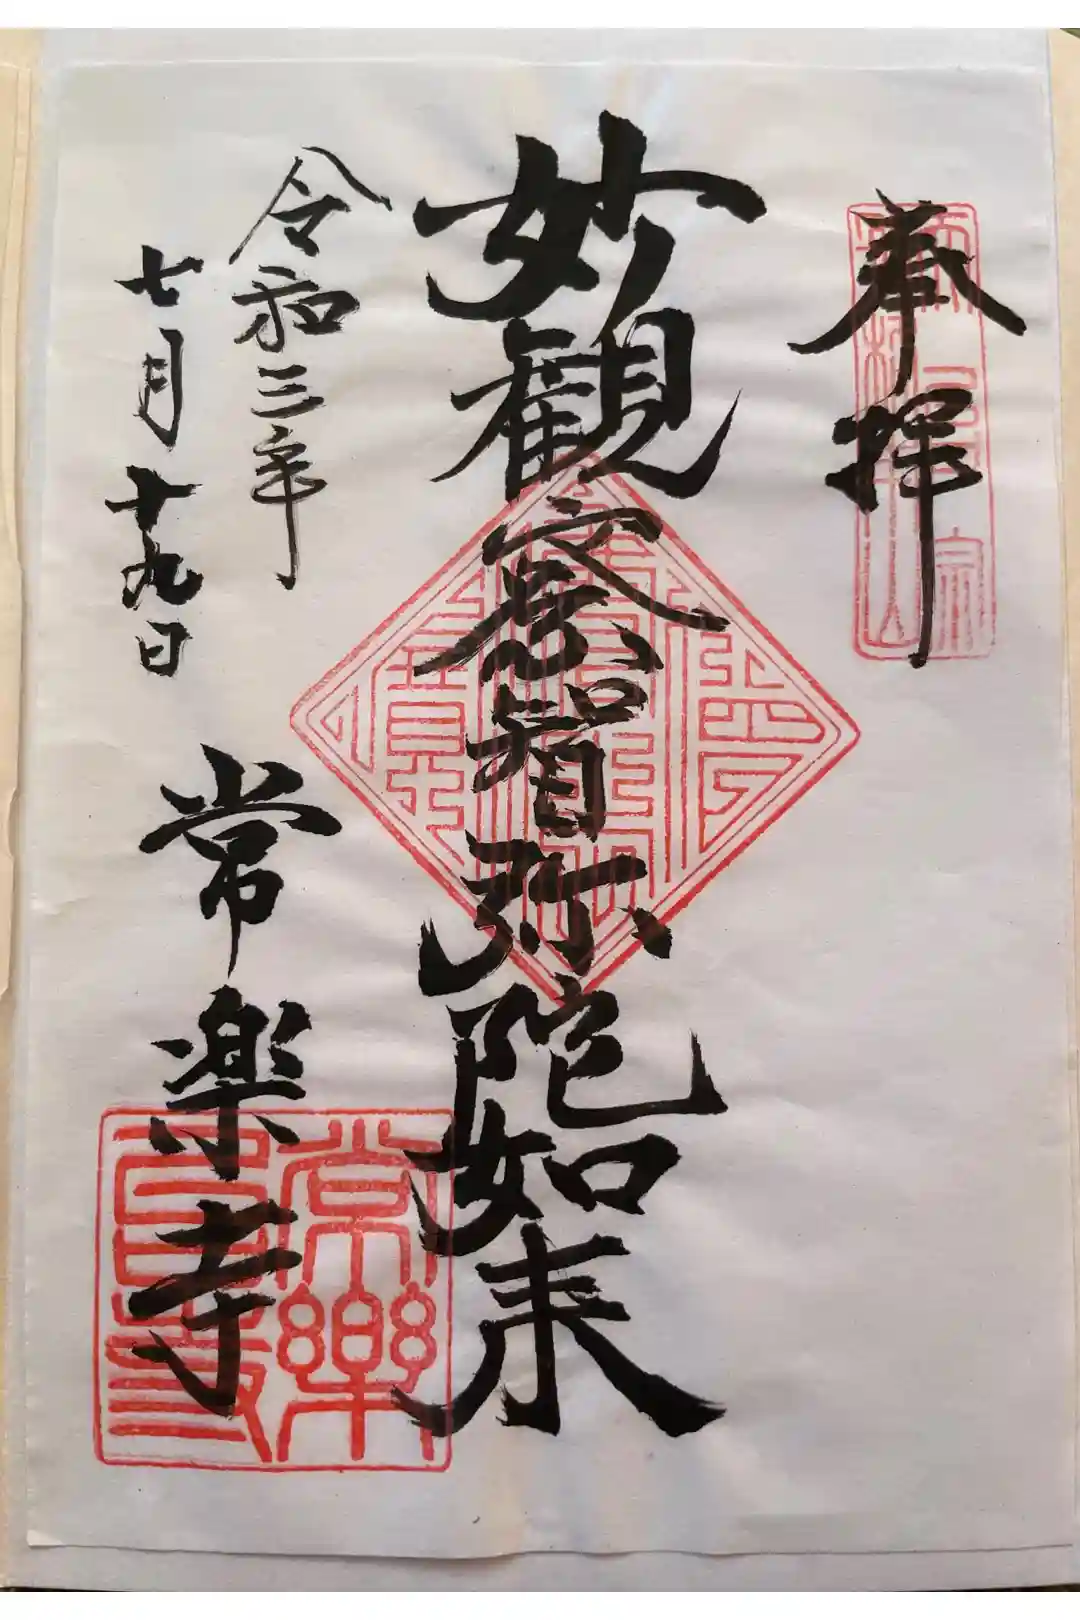 奉拝
妙観察智弥陀如来
令和三年
七月十九日
常楽寺
常樂